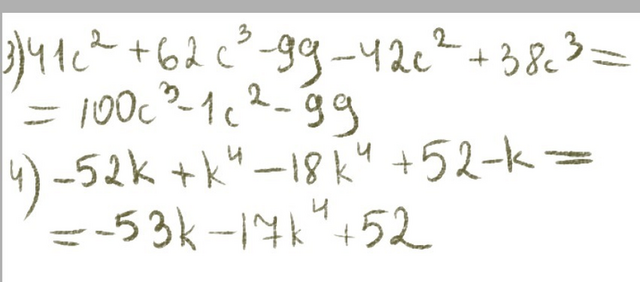 3) 41c² + 62c³ - 99 - 42c² + 38c³ =
= 100c³ - 1c² - 99
4) -52k + k⁴ - 18k⁴ + 52 - k =
= -53k - 17k⁴ + 52